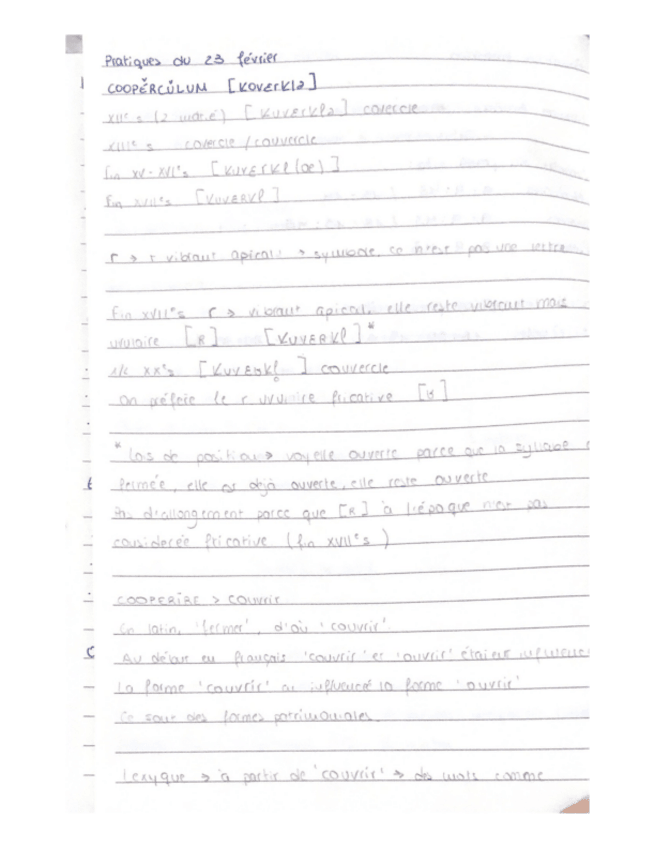 Pratiques du 23 février
COOPĔRCŬLUM [KOVERKLə]
XIIe s (2 moitié) [KUVERKLə] covercle
XIIIe s covercle / couvercle
fin XV-XVIe s [KUVERKL(œ)]
fin XVIIe s [KUVERKL]
r → r vibrant apical → symbole, ce n'est pas une lettre
fin XVIIe s r → vibrant apical, elle reste vibrant mais
uvulaire [R] [KUVERKL]*
XXe s [KUVEʁKL̥] couvercle
On préfère le r uvulaire fricative [ʁ]
* Lois de position → voyelle ouverte parce que la syllabe
fermée, elle est déjà ouverte, elle reste ouverte
Pas d'allongement parce que [R] à l'époque n'est pas
considerée fricative (fin XVIIe s)
COOPERĪRE > couvrir
En latin, 'fermer', d'où 'couvrir'.
Au début en français 'couvrir' et 'ouvrir' étaient
La forme 'couvrir' a influencé la forme 'ouvrir'
Ce sont des formes patrimoniales.
Lexyque → à partir de 'couvrir' → des mots comme